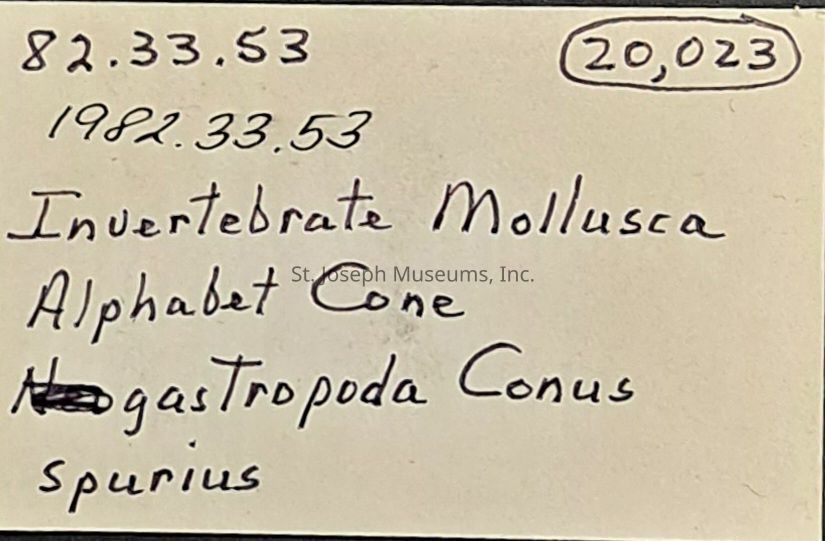 82.33.53
20,023
1982.33.53
Invertebrate Mollusca
St. Joseph Museums, Inc.
Alphabet Cone
Neogastropoda Conus
spurius